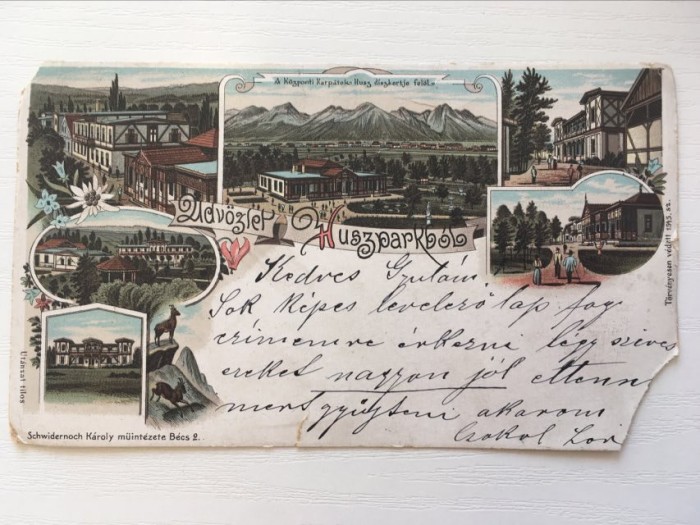 A Központi Karpátok: Husz díszkertje felől.
Üdvözlet a Huszparkból
Kedves Gyulám!
Sok képes levelező lap fog
czímemre érkezni légy szíves
ezeket nagyon jól eltenni
mert gyűjteni akarom
Csokol
Utánzat tilos
Törvényesen védett 1593. sz.
Schwidernoch Károly műintézete Bécs 2.